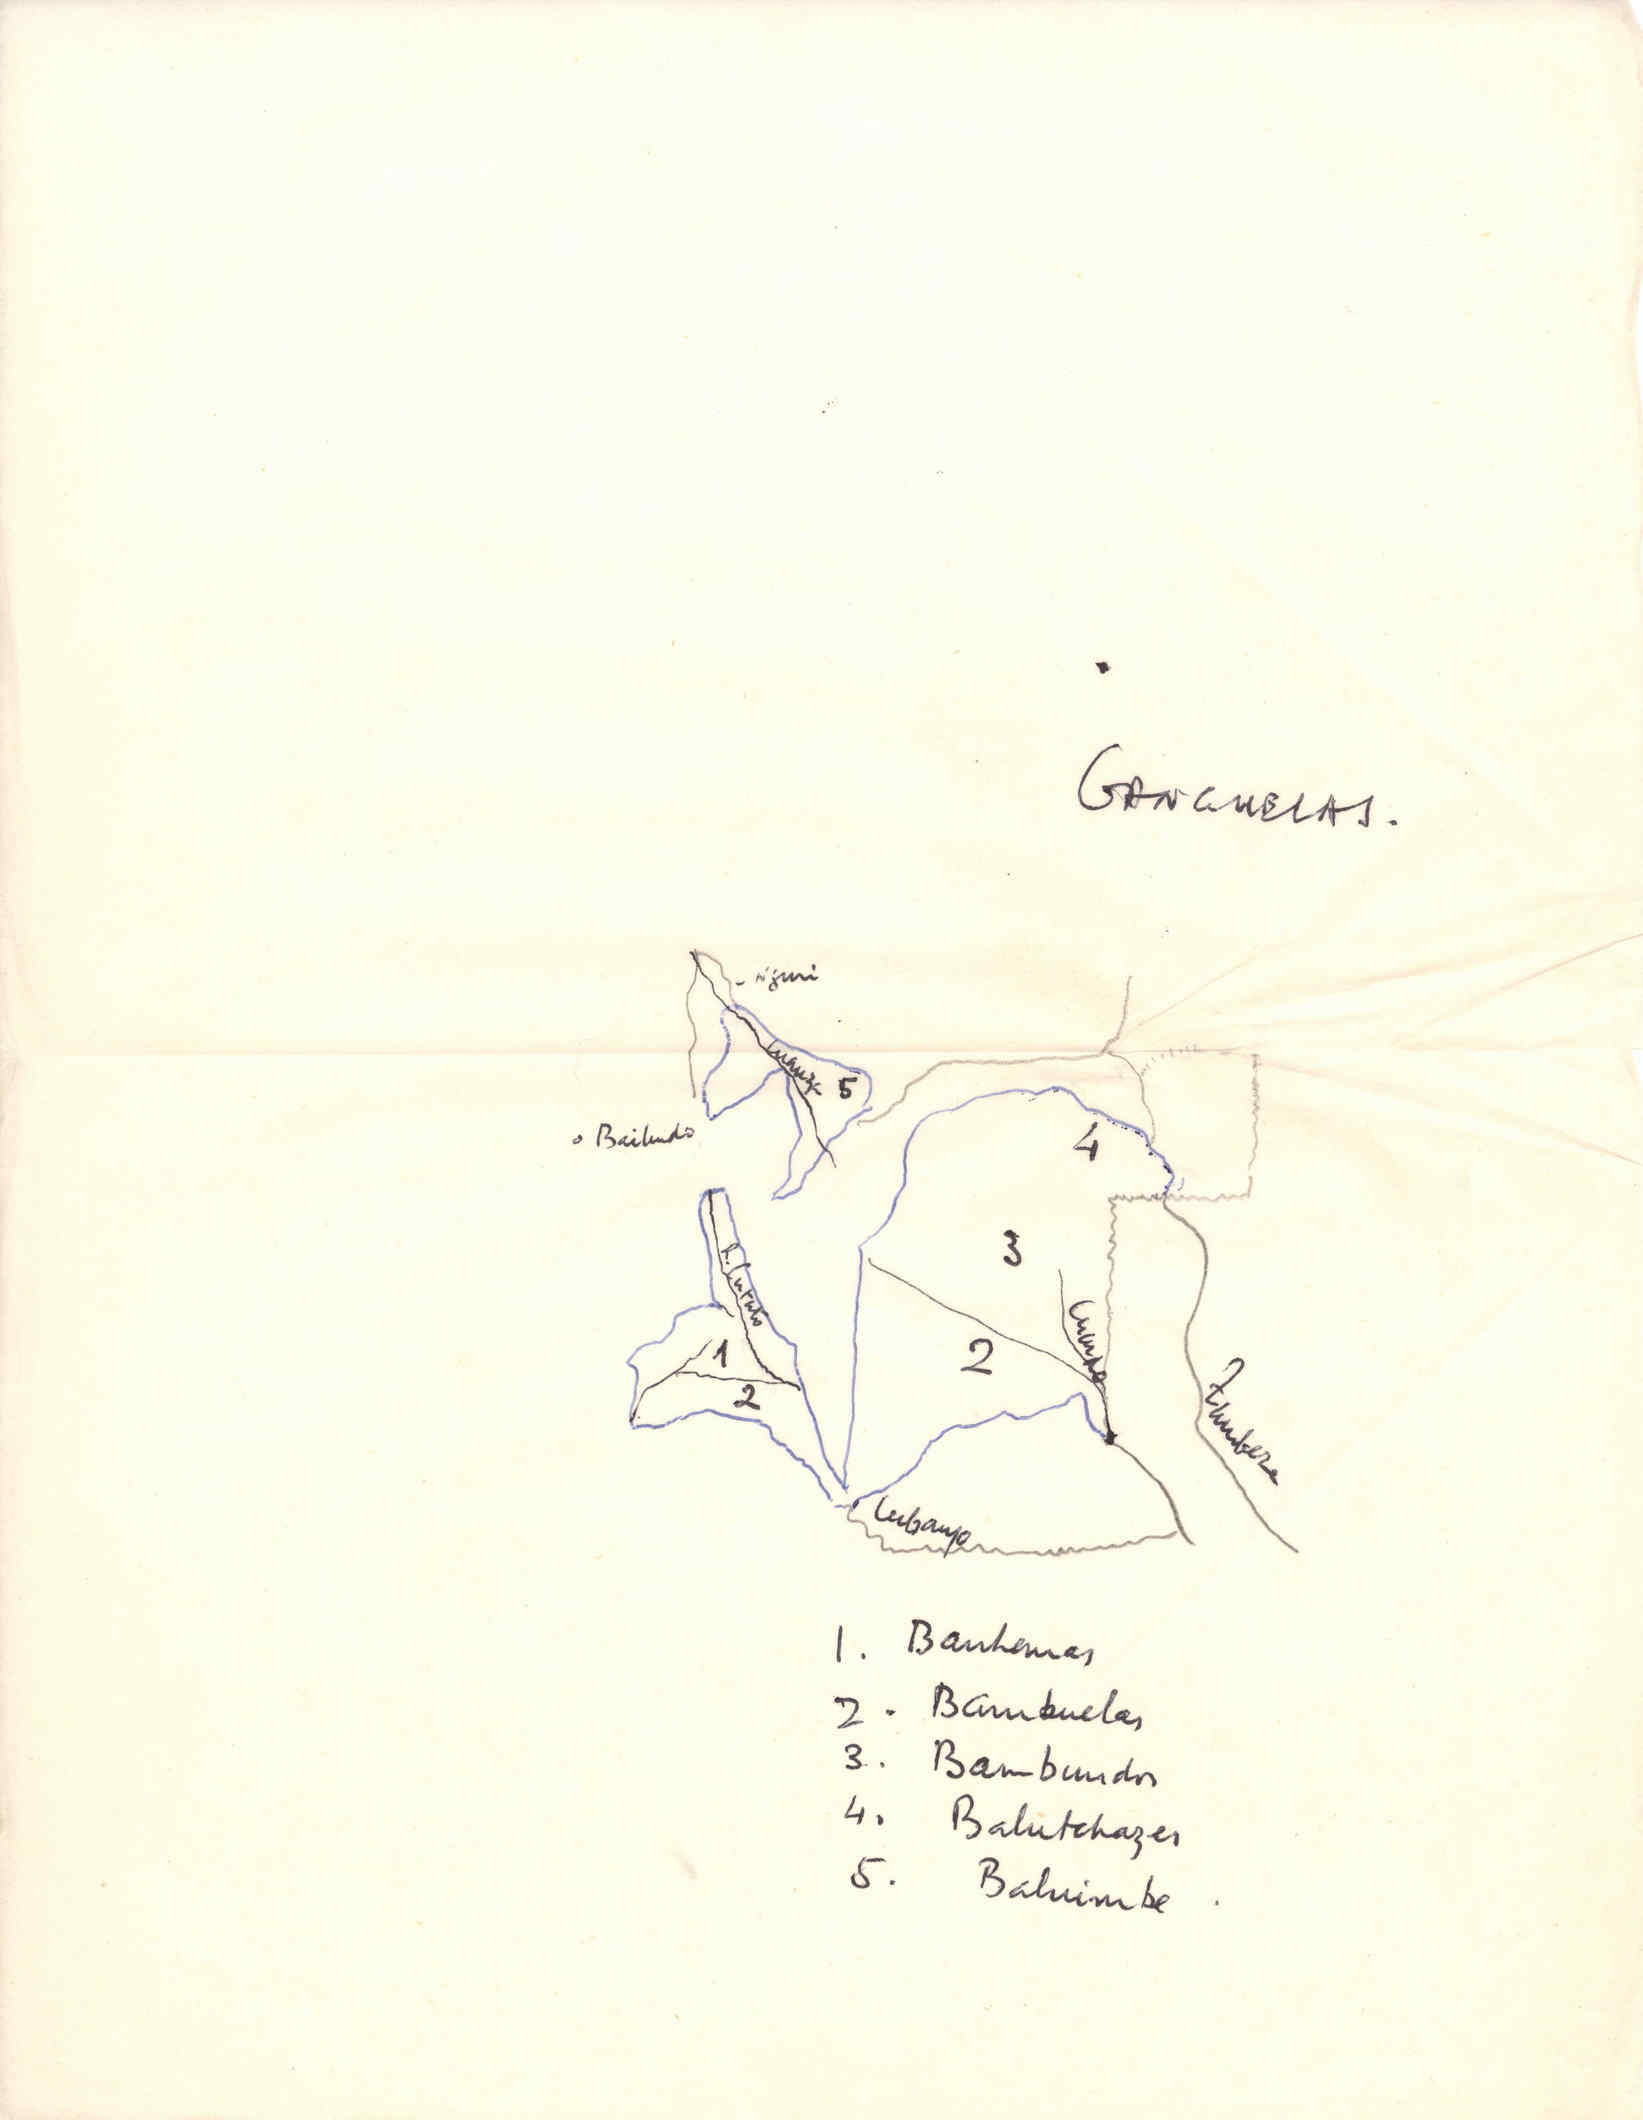 GANGUELAS.
Luando
5
o Bailundo
4
3
R. Cutato
Cuando
1
2
2
Zambeze
Cubango
1. Bankemas
2. Bambuelas
3. Bambundos
4. Balutchazes
5. Baluimbe.